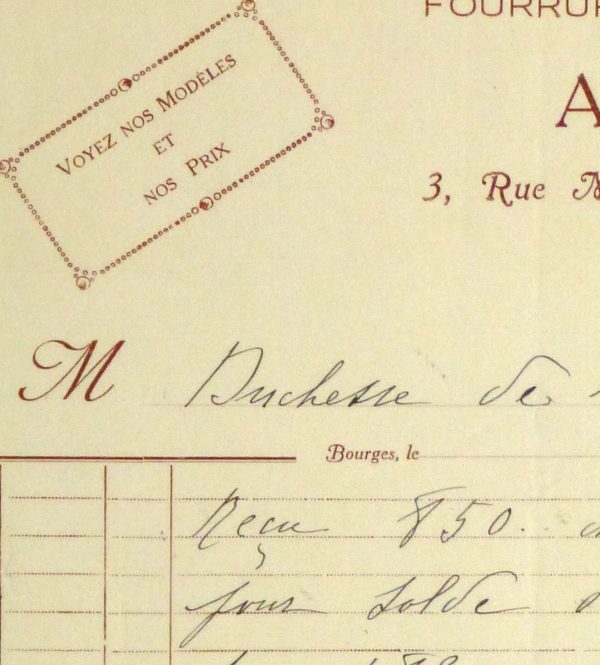 FOURRUR
VOYEZ NOS MODÈLES
ET
NOS PRIX
A
3, Rue M
M Duchesse de
Bourges, le
Reçu 850
pour solde